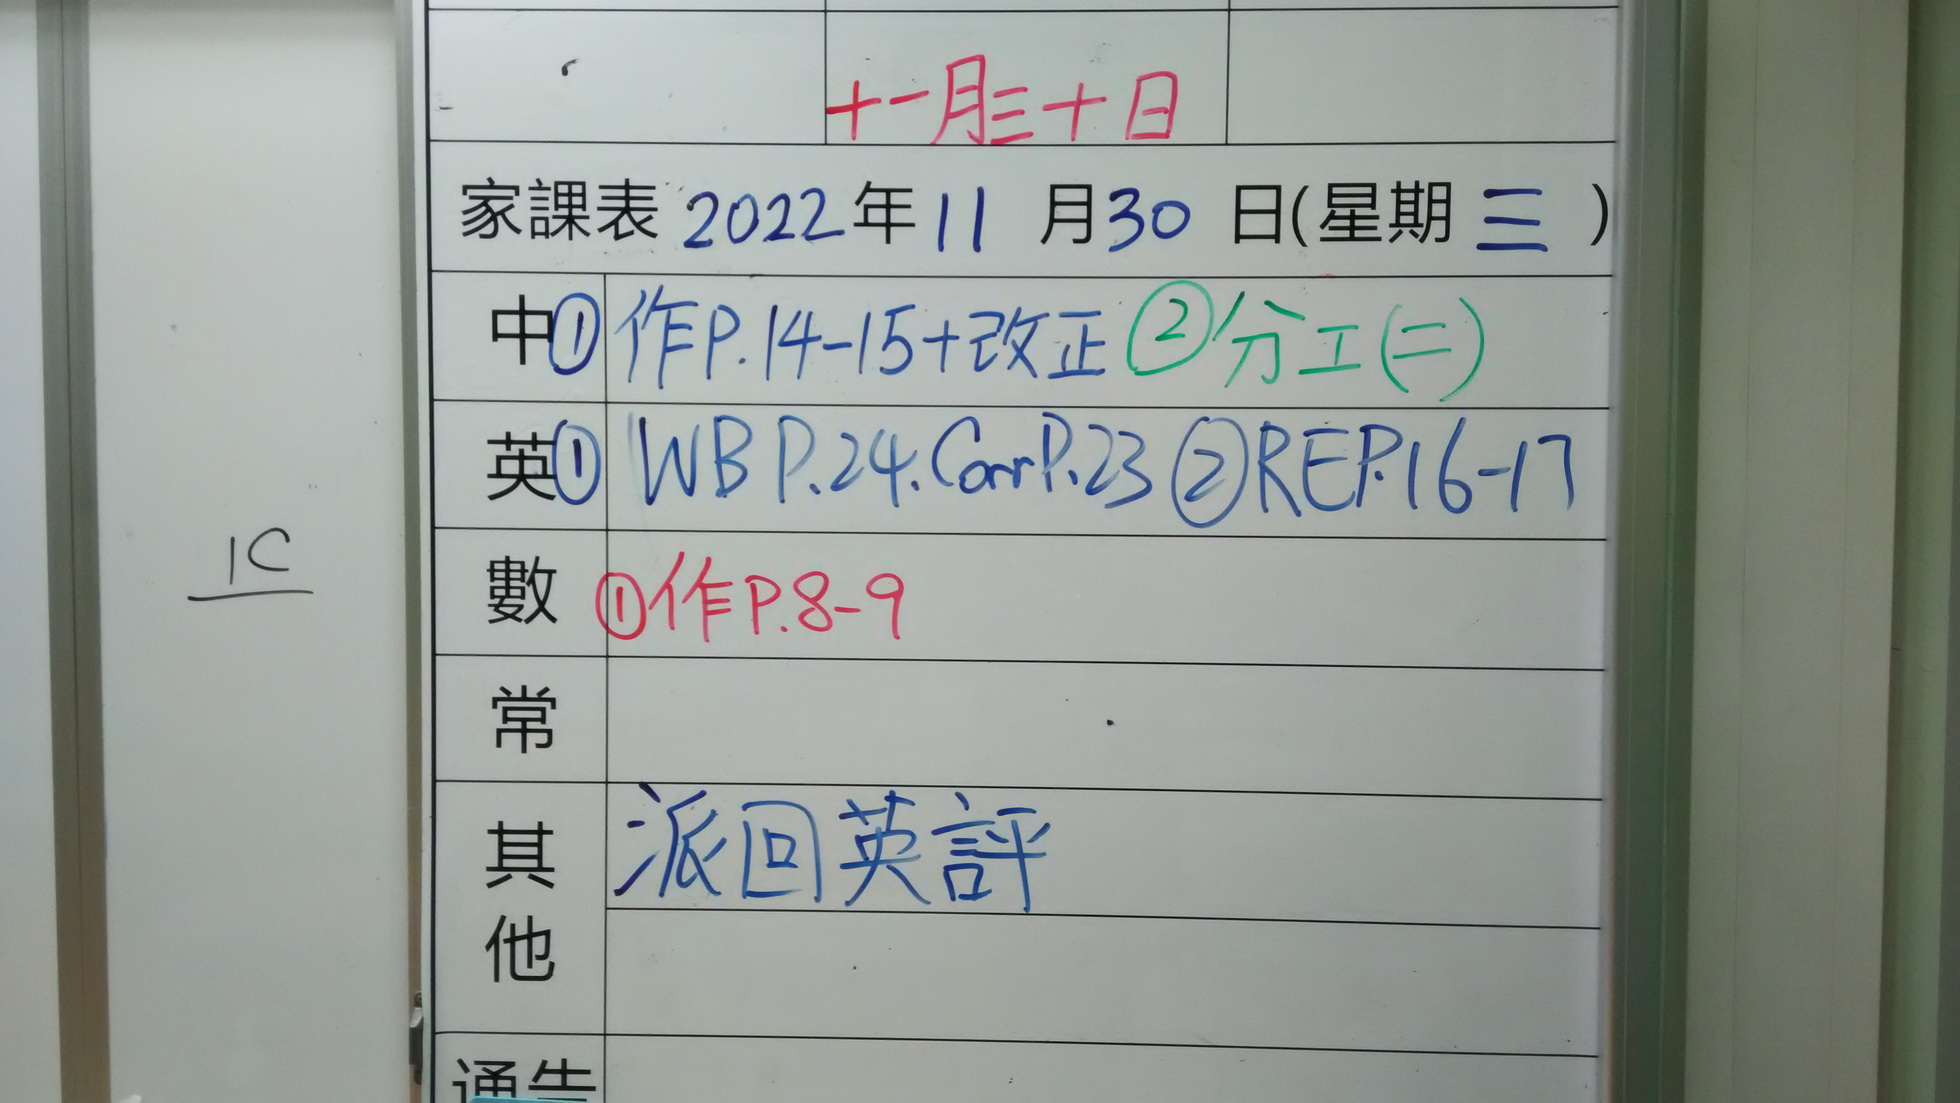 十一月三十日
家課表 2022年11月30日(星期三)
中 ① 作P.14-15+改正 ② 分工(二)
英 ① WB P.24. Corr P.23 ② RE P.16-17
1C
數 ① 作P.8-9
常
其他 派回英評
通告